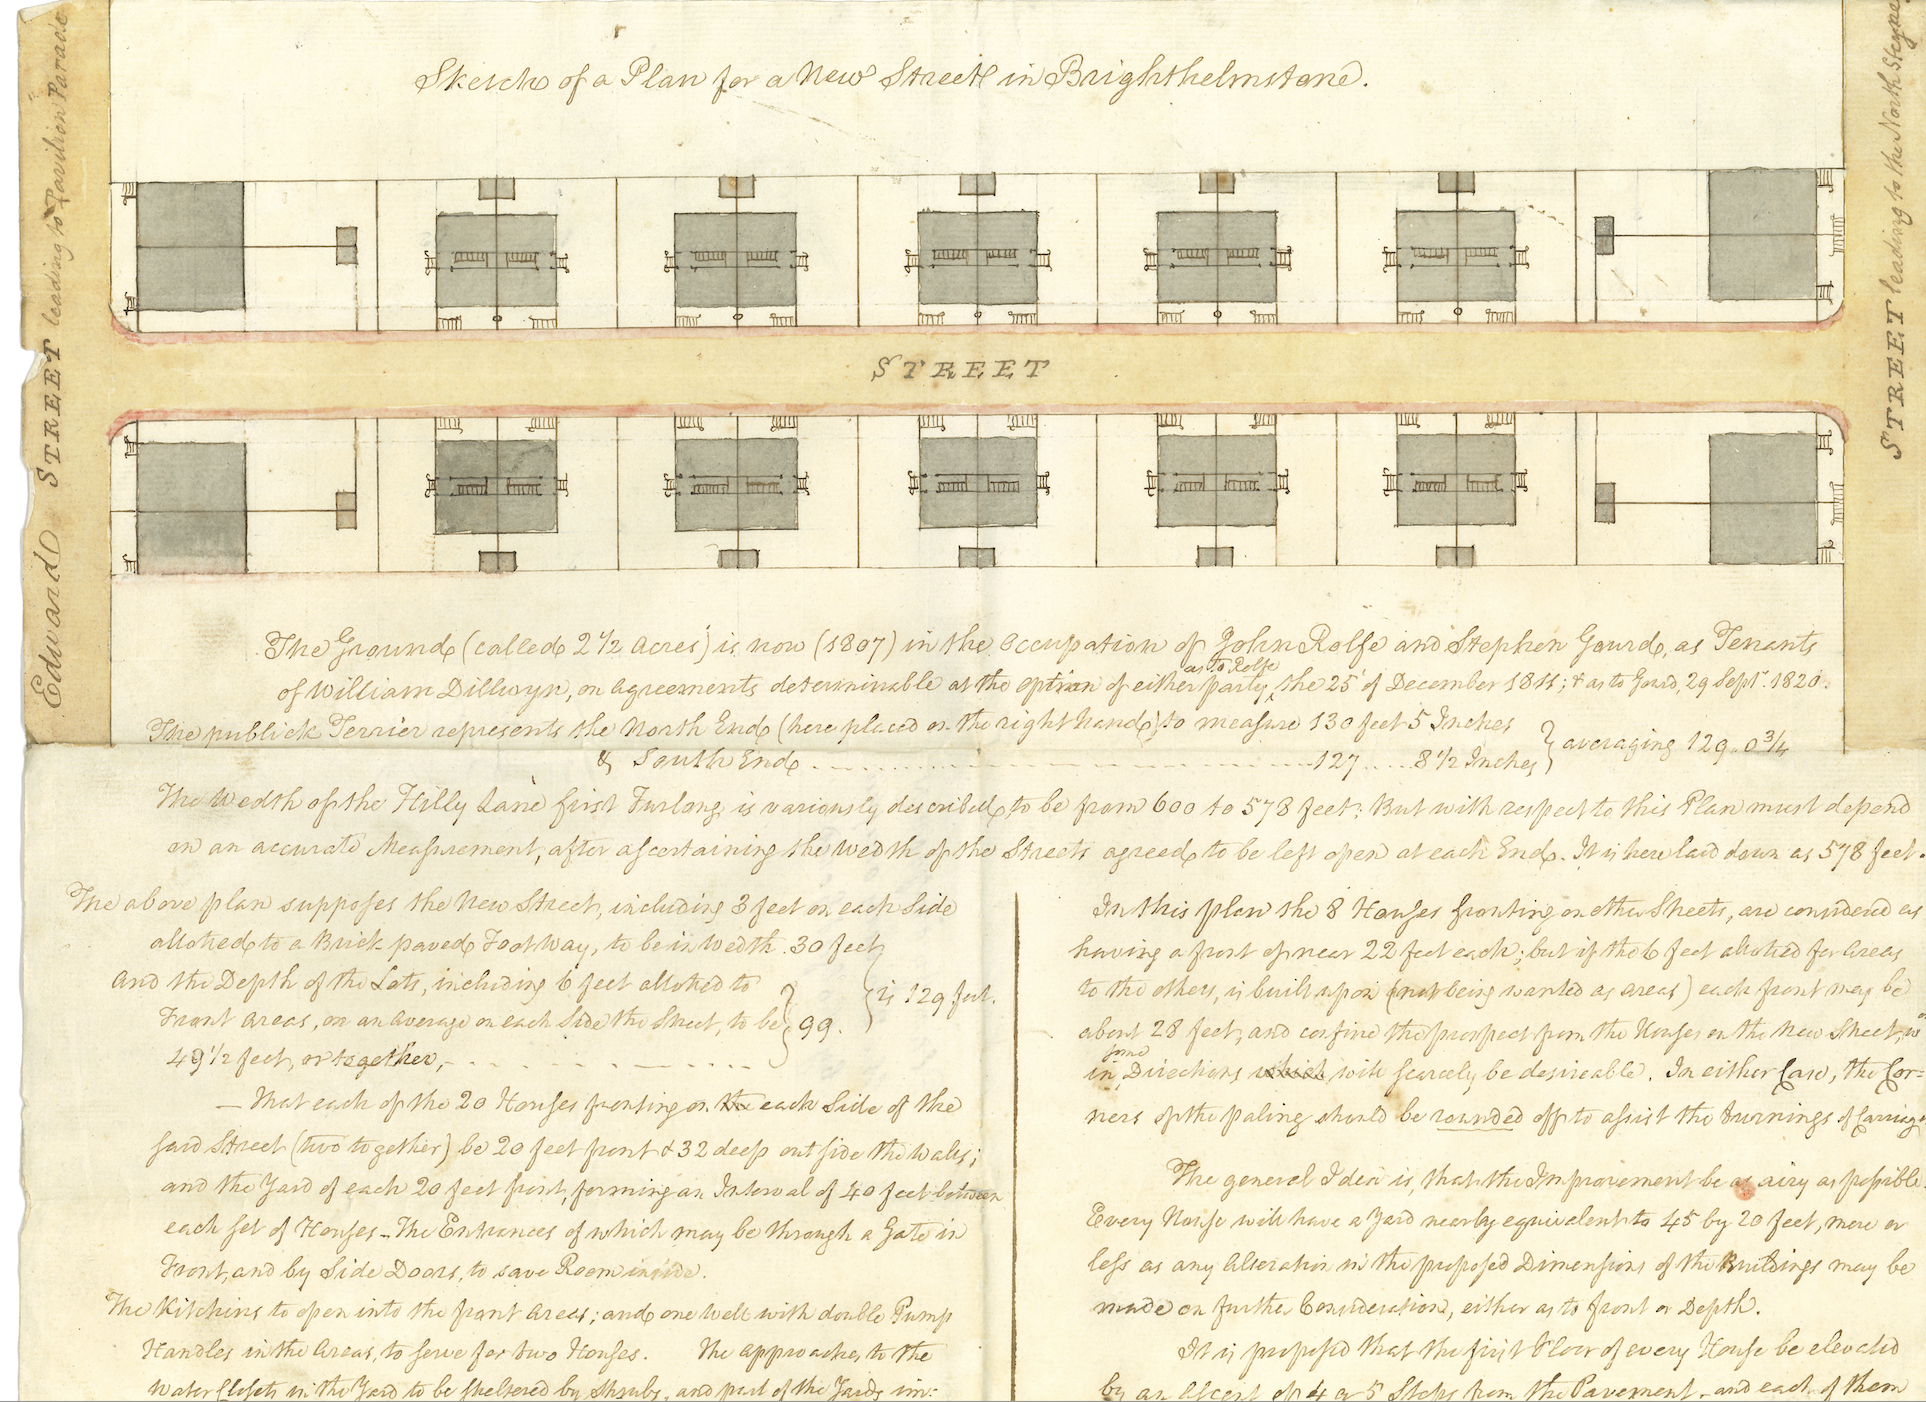 Sketch of a Plan for a New Street in Brighthelmstone.
Edward STREET leading to Pavilion Parade
STREET
STREET leading to the North Steyne
The Ground (called 2 1/2 Acres) is now (1807) in the Occupation of John Rolfe and Stephen Gourd, as Tenants
of William Dillwyn, on Agreements determinable at the option of either party, as to Rolfe the 25 of December 1811; & as to Gourd, 29 Septr. 1820.
The publick Terrier represents the North End (here placed on the right hand) to measure 130 feet 5 Inches
& South End 127 8 1/2 Inches } averaging 129..0 3/4
The Wedth of the Hilly Lane first Furlong is variously described to be from 600 to 578 feet: But with respect to this Plan must depend
on an accurate Measurement, after ascertaining the Wedth of the Streets agreed to be left open at each End. It is here laid down as 578 feet.
The above plan supposes the New Street, including 3 feet on each Side
allotted to a Brick paved Foot Way, to be in Wedth. 30 feet
And the Depth of the Lots, including 6 feet allotted to
Front Areas, on an Average on each Side the Street, to be } 99. } is 129 feet.
49 1/2 feet, or together,
— That each of the 20 Houses fronting on the each Side of the
said Street (two together) be 20 feet front & 32 deep outside the Walls;
and the Yard of each 20 feet front, forming an Interval of 40 feet between
each set of Houses – The Entrances of which may be through a Gate in
Front, and by Side Doors, to save Room inside.
The Kitchins to open into the front Areas; and one Well with double Pump
Handles in the Areas, to serve for two Houses. The approaches to the
Water Closets in the Yard to be sheltered by Shrubs, and part of the Yards im=
In this plan the 8 Houses fronting on other Streets, are considered as
having a front of near 22 feet each; but if the 6 feet allotted for Areas
to the others, is built upon (not being wanted as Areas) each front may be
about 28 feet, and confine the prospect from the Houses on the New Street,
in some Directions which will scarcely be desireable. In either Case, the Cor=
ners of the paling should be rounded off to assist the turnings of Carriages
The general Idea is, that the Improvement be as airy as possible.
Every House will have a Yard nearly equivalent to 45 by 20 feet, more or
less as any Alteration in the proposed Dimensions of the Buildings may be
made on further Consideration, either as to front or Depth.
It is proposed that the first Floor of every House be elevated
by an Ascent of 4 or 5 Steps from the Pavement, and each of them